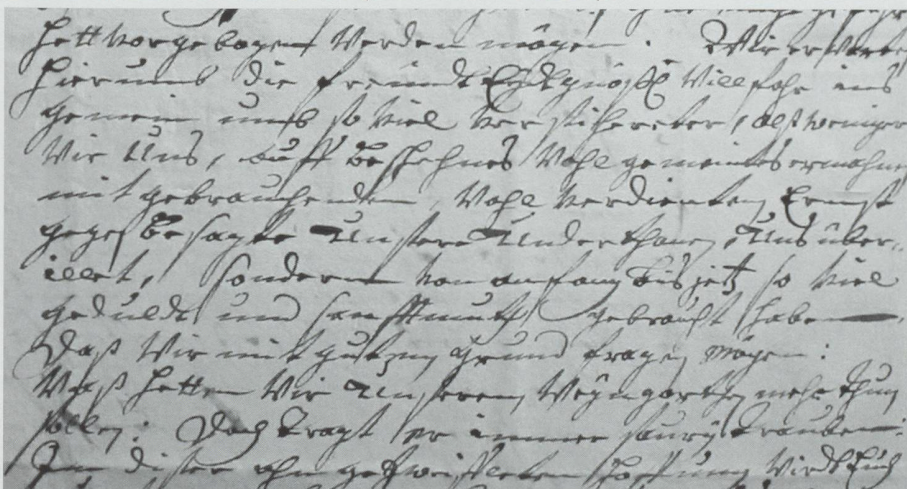 hett vorgebogen werden mögen. Wir erwarten
hierumb die freündt Eydtgnößl willfahr ins
gemein umb so viel versicherter, alß weniger
Wir Uns, auff beschehnes wohlgemeintes ermahnen
mit gebrauchendem, wohl verdienten Ernst
gegen besagte Unsere Underthanen, Uns über-
illet, sondern von anfang bis jetz so viel
geduldt und sanfftmuth gebraucht haben
Daß Wir mit gutem grund fragen mögen:
Waß hetten Wir Unserem Weyngarthen mehr thun
sollen: Doch tragt er immer saure Trauben:
In diser ohngezweiffleten Hoffnung wirdt Euch